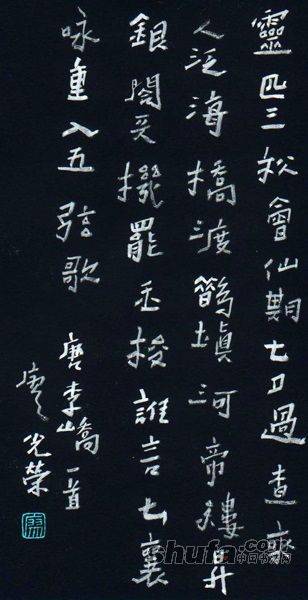 靈匹三秋會仙期七夕過查來
人泛海橋渡鵲填河帝縷昇
銀閣天機罷玉梭誰言七襄
咏重入五弦歌
唐李嶠一首
廖光榮
shufa.com
中国书法网